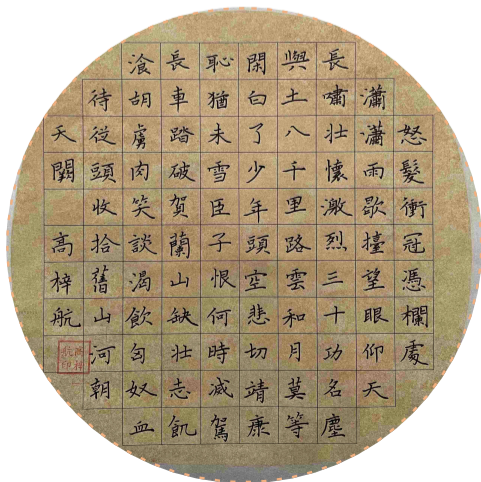 怒髮衝冠憑欄處
瀟瀟雨歇擡望眼仰天
長嘯壯懷激烈三十功名塵
與土八千里路雲和月莫等
閑白了少年頭空悲切靖康
恥猶未雪臣子恨何時减駕
長車踏破賀蘭山缺壯志飢
湌胡虜肉笑談渴飲匈奴血
待從頭收拾舊山河朝
天闕 高梓航
高梓航印